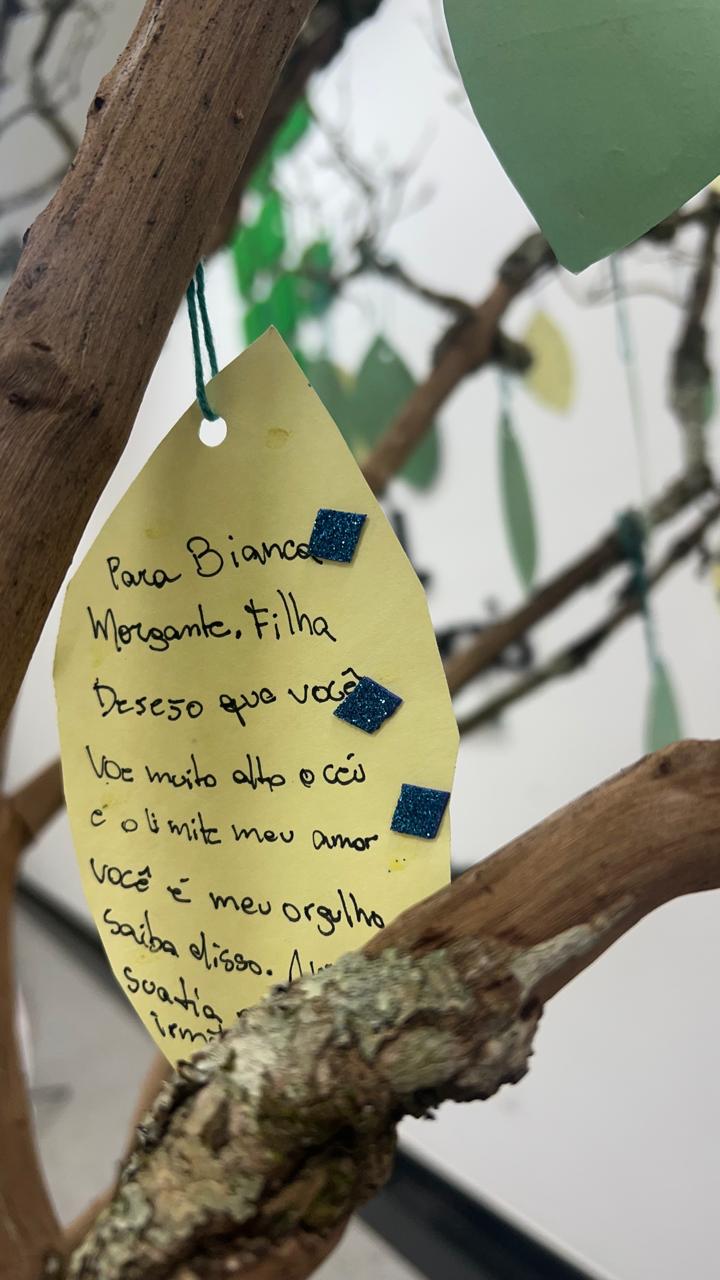 Para Bianca
Morgante. Filha
Desejo que você
Voe muito alto o céu
e o limite meu amor
você é meu orgulho
Saiba disso.
sua tia